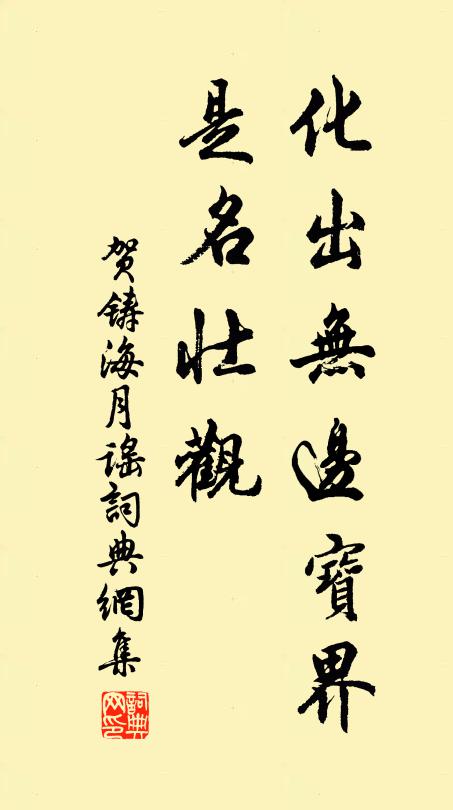 化出無邊寶界
是名壯觀
贺鑄海月谣詞典網集
詞典网印